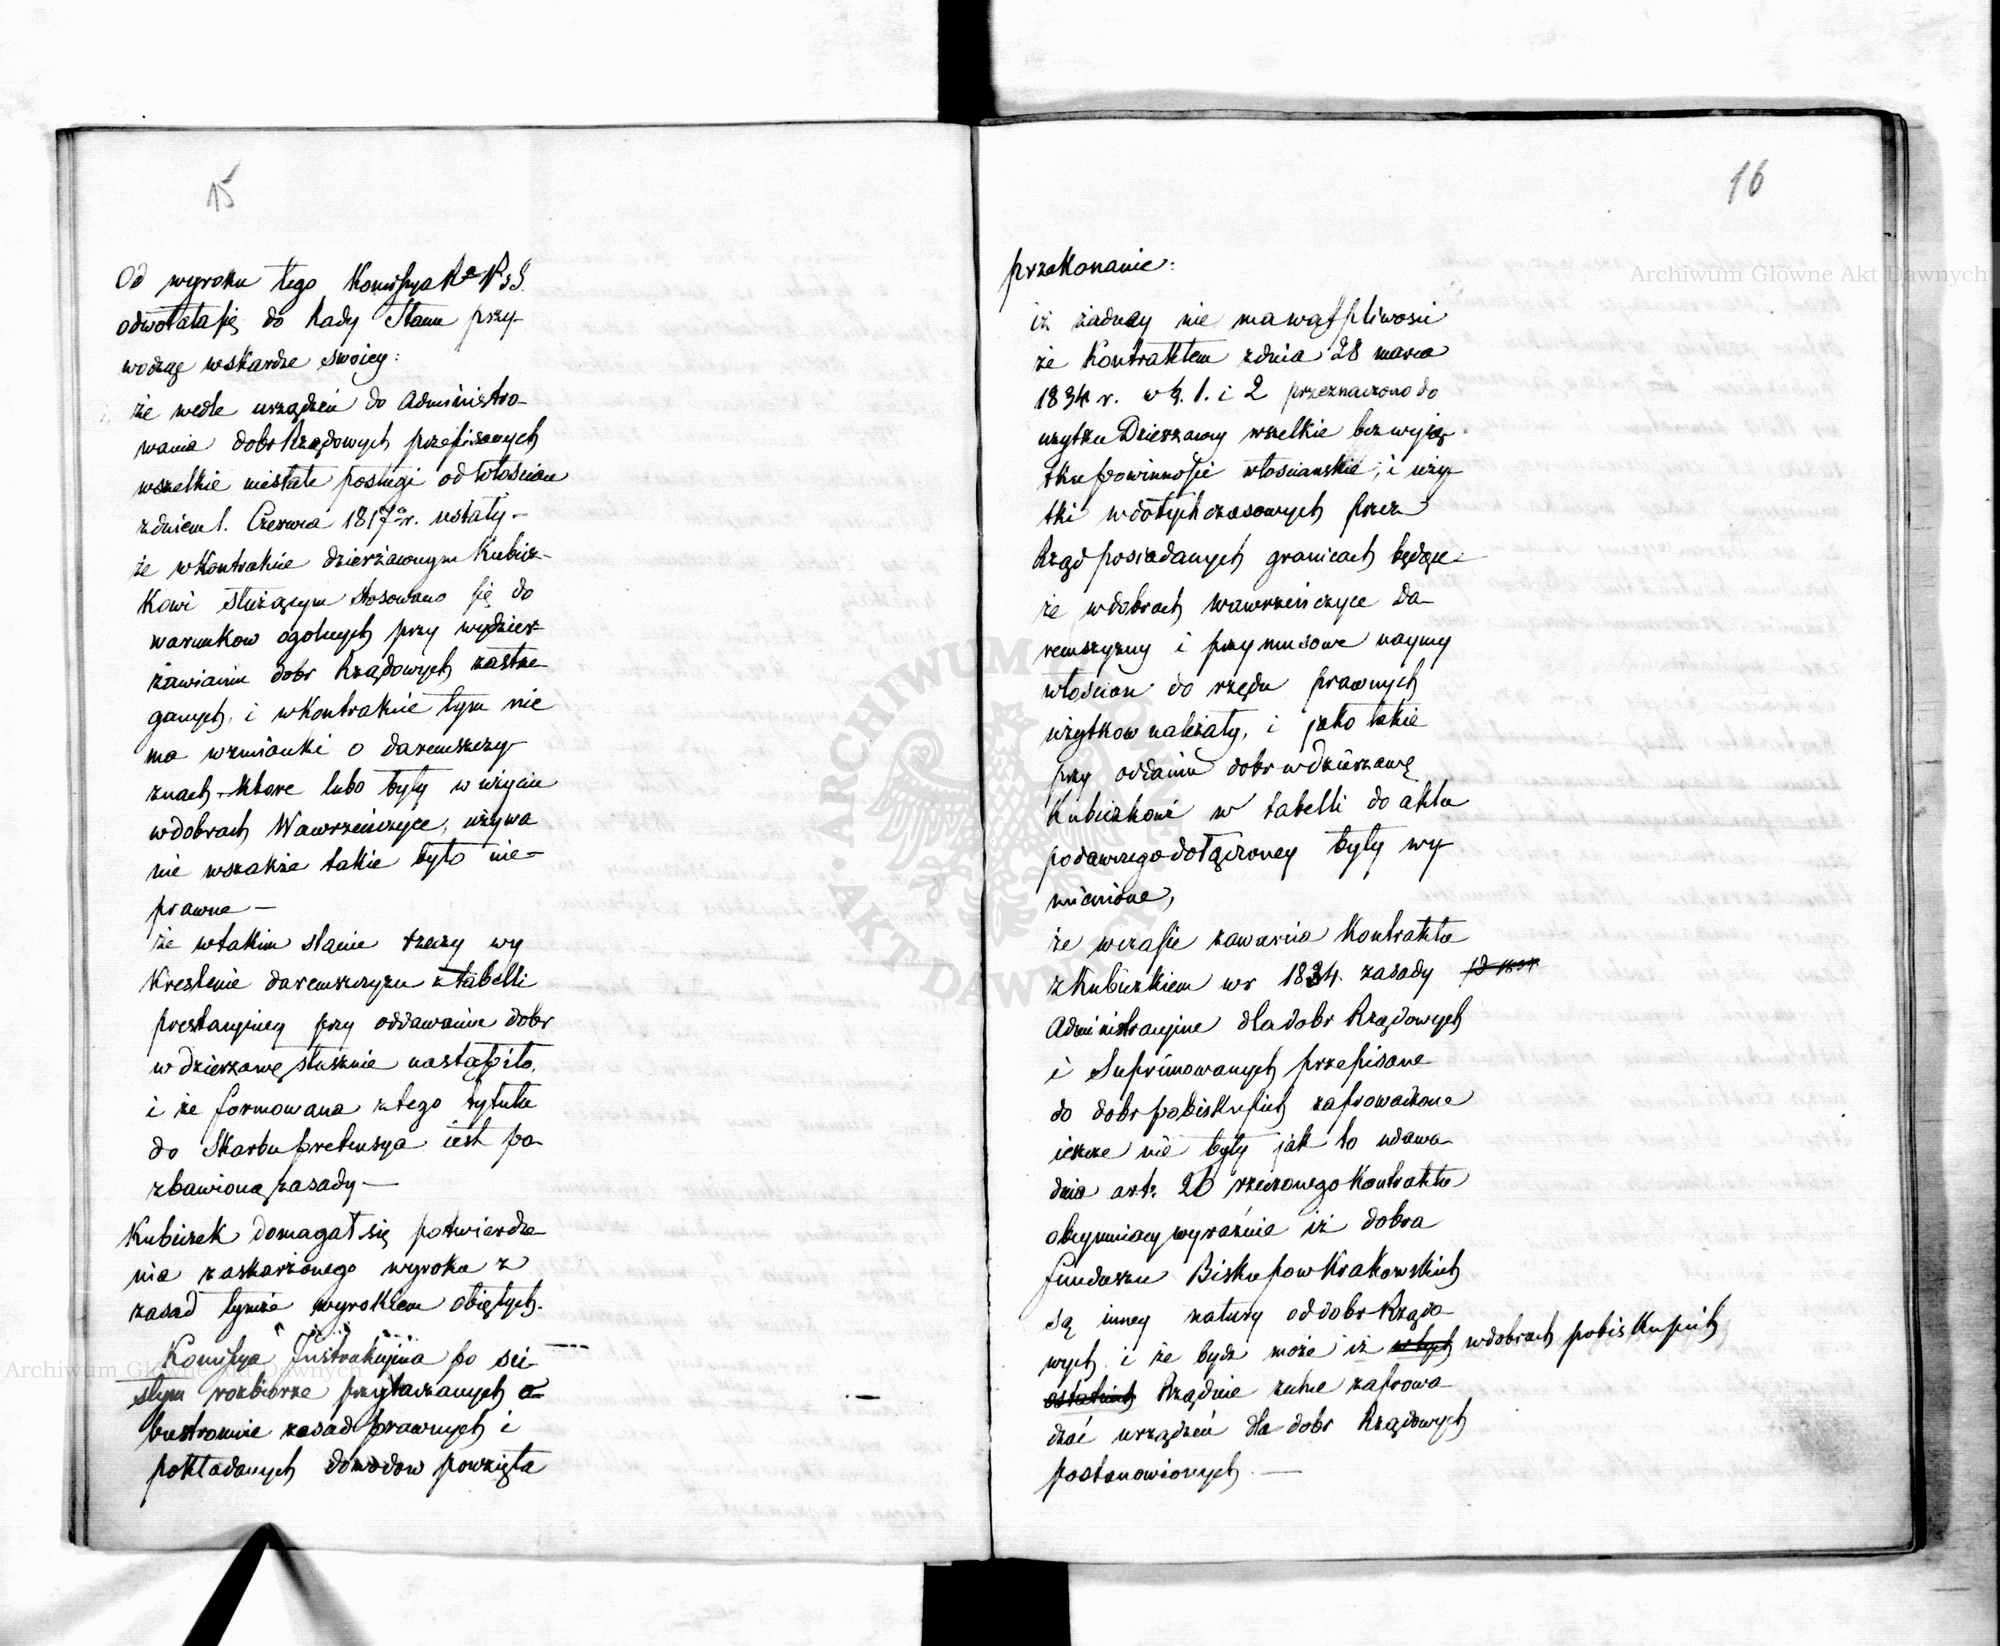 15
Od wyroku tego Komissya Rᵃ P. i S.
odwołała się do Rady Stanu przy-
wodząc w skardze swoiey:
że wedle urządzeń do Administro-
wania dobr Rządowych przepisanych
wszelkie niestałe posługi od Włościan
z dniem 1. Czerwca 1817 r. ustały -
że w Kontrakcie dzierżawnym Kubicz-
kowi służącym stosowano się do
warunkow ogolnych przy wydzier-
żawianiu dobr Rządowych zastrze-
ganych, i w Kontrakcie tym nie
ma wzmianki o daremszczy-
znach - ktore lubo były w użyciu
w dobrach Wawrzeńczyce, używa
nie wszakże takie było nie-
prawne -
że w takim stanie rzeczy wy
kreślenie daremszczyzn z tabelli
prestacyiney przy oddawaniu dobr
w dzierżawę słusznie nastąpiło,
i że formowana z tego tytułu
do Skarbu pretensya iest po-
zbawioną zasady -
Kubiczek domagał się potwierdze-
nia zaskarżonego wyroku z
zasad tymże wyrokiem obiętych.
Komissya Instrukcyjna po ści-
słym rozbiorze przytaczanych o-
bustronnie zasad prawnych i
pokładanych dowodow powzięła
16
przekonanie:
iż żadney nie ma wątpliwości
że Kontraktem z dnia 28 marca
1834 r. w §. 1. i 2 przeznaczono do
użytku Dzierżawcy wszelkie bez wyią-
tku powinności włościańskie, i uży-
tki w dotychczasowych przez
Rząd posiadanych granicach będące
że w dobrach Wawrzeńczyce da-
remszczyzny i przymusowe naymy
włościan do rzędu prawnych
użytkow należały, i jako takie
przy oddaniu dobr w dzierżawę
Kubiczkowi w tabelli do aktu
podawczego dołączoney były wy-
mienione,
że w czasie zawarcia Kontraktu
z Kubiczkiem w r 1834. zasady
Administracyjne dla dobr Rządowych
i Supprimowanych przepisane
do dobr pobiskupich zaprowadzone
ieszcze nie były jak to udowa-
dnia art. 26 rzeczonego Kontraktu
obeymuiący wyraźnie iż dobra
funduszu Biskupow Krakowskich
są inney natury od dobr Rządo-
wych i że bydź może iż w tych w dobrach pobiskupich
ostatnich Rząd nie zechce zaprowa-
dzać urządzeń dla dobr Rządowych
postanowionych. -
Archiwum Główne Akt Dawnych
Archiwum Główne Akt Dawnych
ARCHIWUM GŁÓWNE AKT DAWNYCH